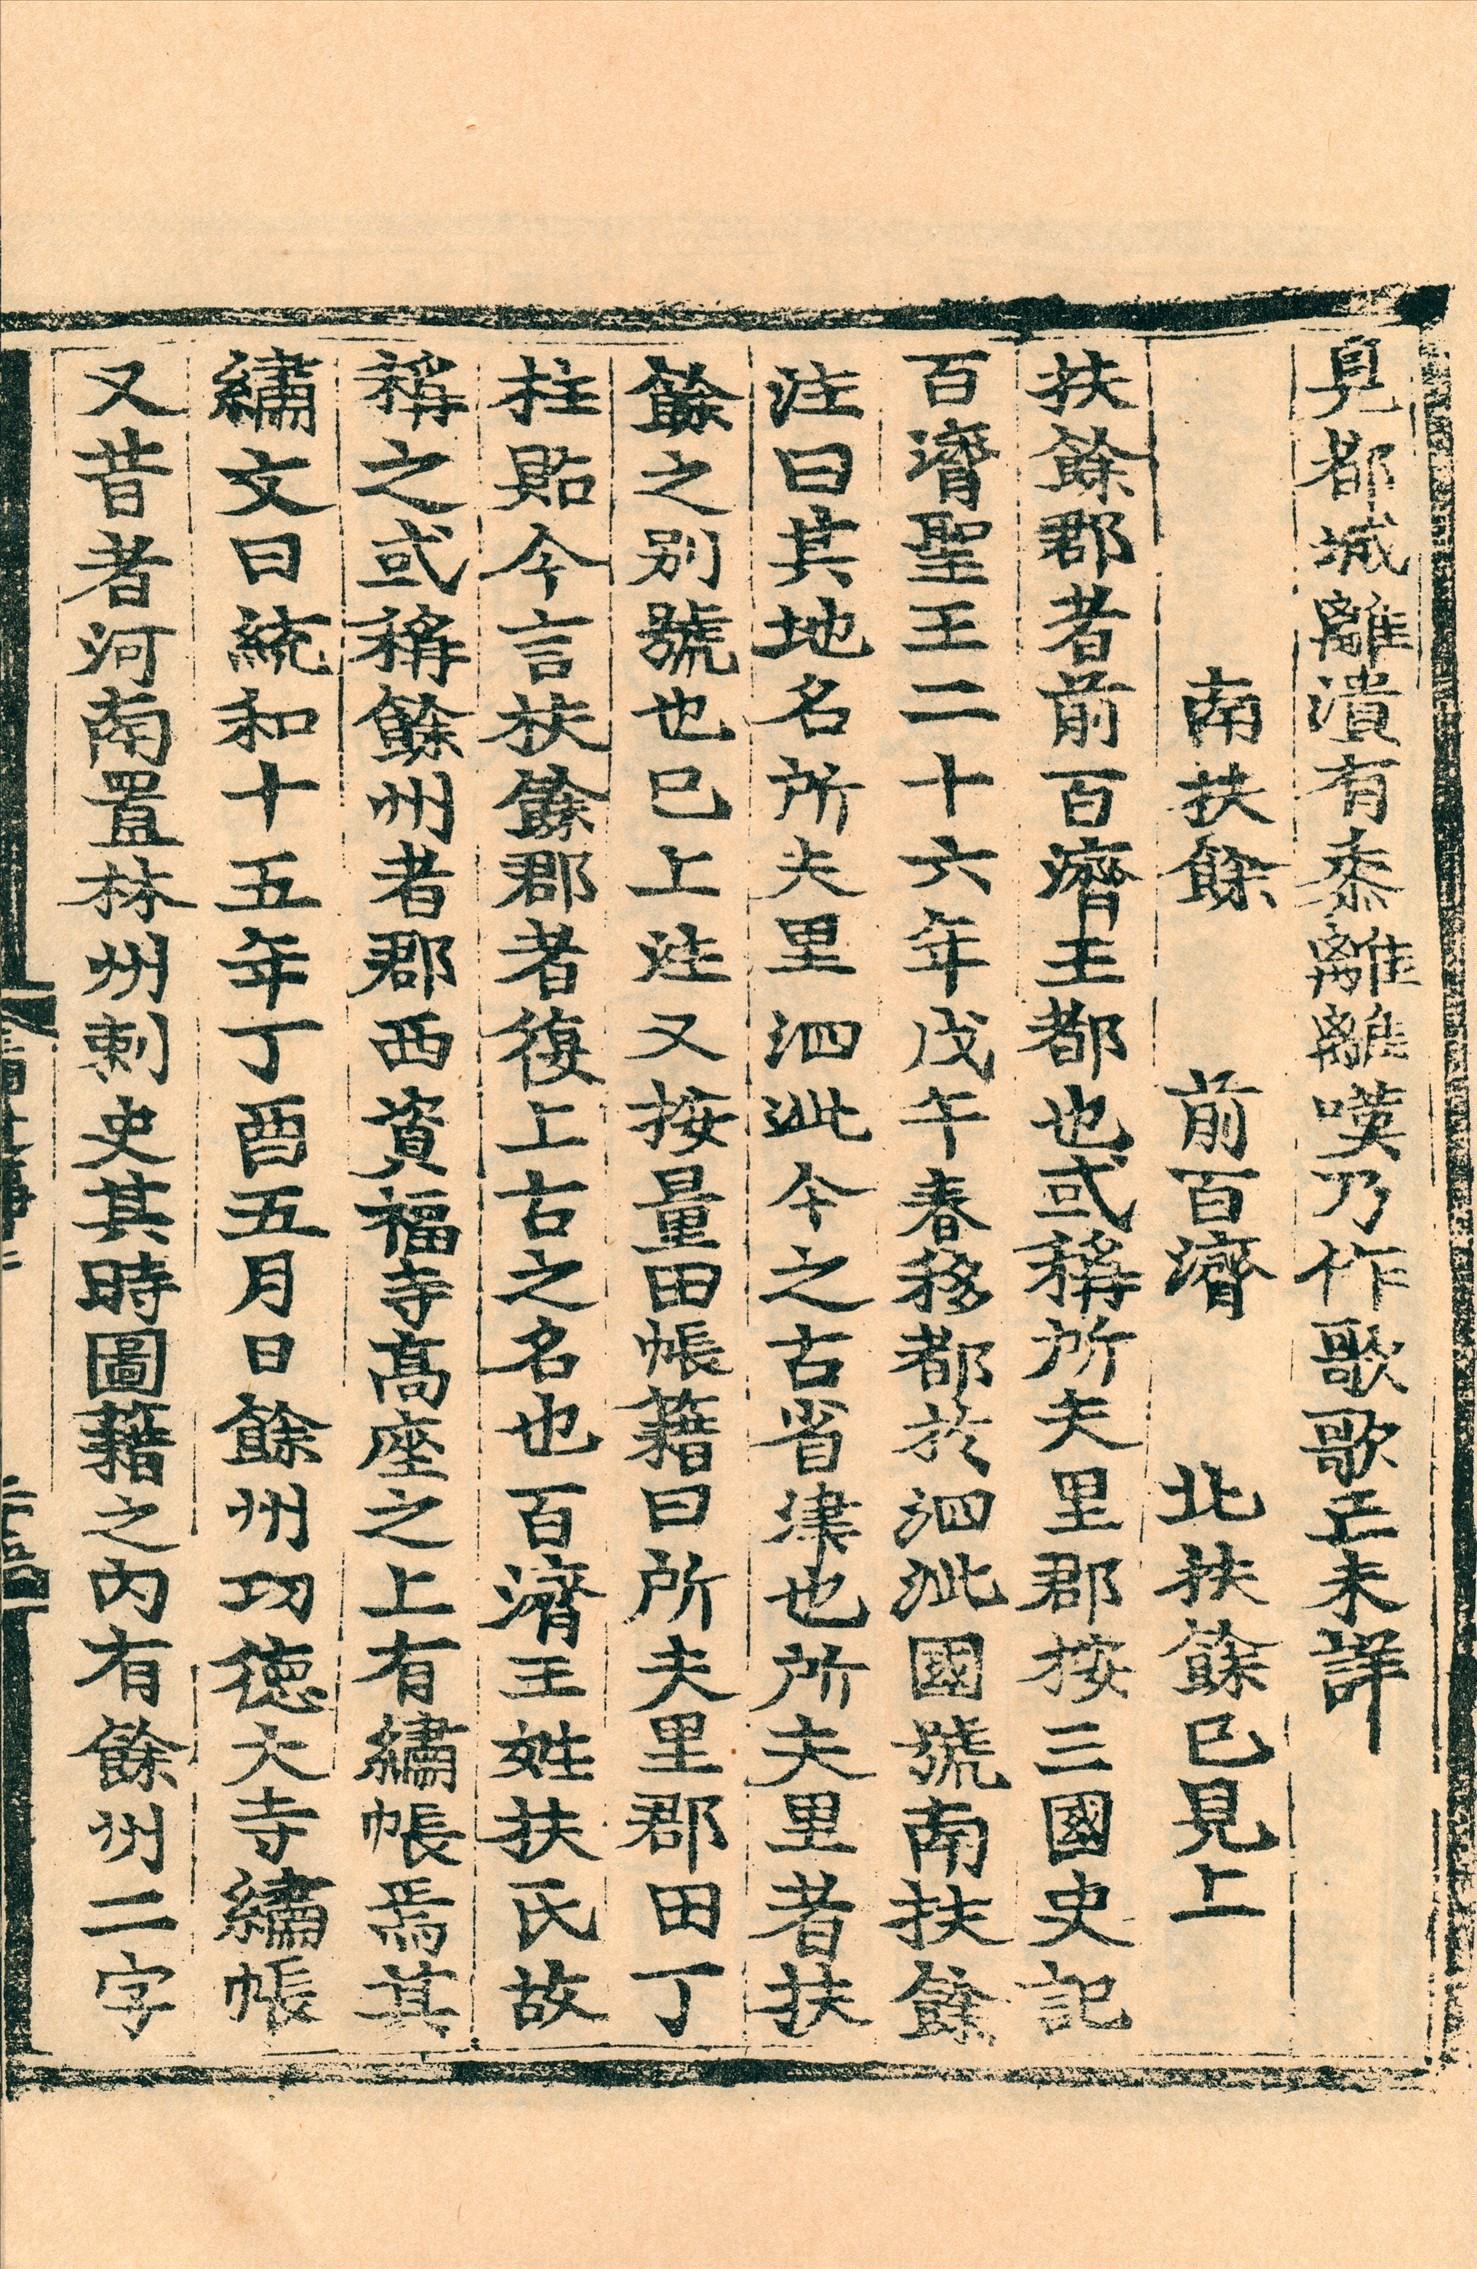 見都城離潰有黍離離嘆乃作歌歌亡未詳
南扶餘　前百濟　北扶餘已見上
扶餘郡者前百濟王都也或稱所夫里郡按三國史記
百濟聖王二十六年戊午春移都於泗沘國號南扶餘
注曰其地名所夫里泗沘今之古省津也所夫里者扶
餘之別號也已上注又按量田帳籍曰所夫里郡田丁
柱貼今言扶餘郡者復上古之名也百濟王姓扶氏故
稱之或稱餘州者郡西資福寺高座之上有繡帳焉其
繡文曰統和十五年丁酉五月日餘州功德大寺繡帳
又昔者河南置林州刺史其時圖籍之內有餘州二字